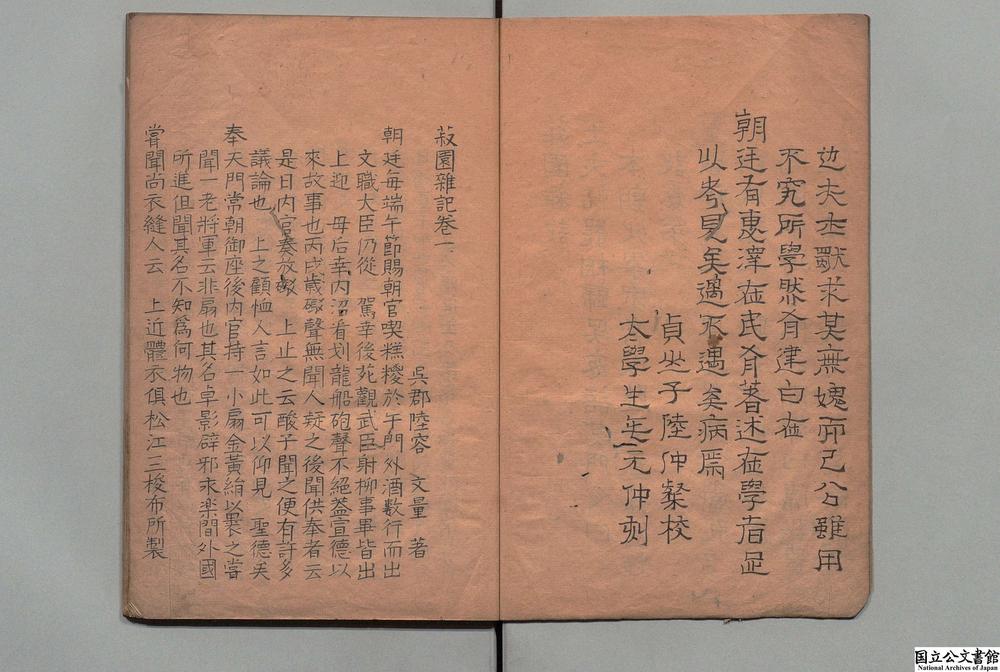 边夫士獸求其無媿而已公雖用
不究所學然肴建白在
朝廷有惠澤在民肴著述在學者足
以岑見矣遇不遇奚病焉
貞山子陸仲粲校
太學生毛元仲刻
菽園雜記卷一
吳郡陸容 文量 著
朝廷每端午節賜朝官喫糕糭於午門外酒數行而出
文職大臣仍從 駕幸後苑觀武臣射柳事畢皆出
上迎 母后幸內沼看划龍船砲聲不絕蓋宣德以
來故事也丙戌歲砲聲無聞人疑之後聞供奉者云
是日内官奏放砲 上止之云酸子聞之便有許多
議論也 上之顧恤人言如此可以仰見 聖德矣
奉天門常朝御座後内官持一小扇金黃絹以裹之嘗
聞一老將軍云非扇也其名卓影辟邪永樂間外國
所進但聞其名不知爲何物也
嘗聞尚衣縫人云 上近體衣俱松江三梭布所製
国立公文書館
National Archives of Japan